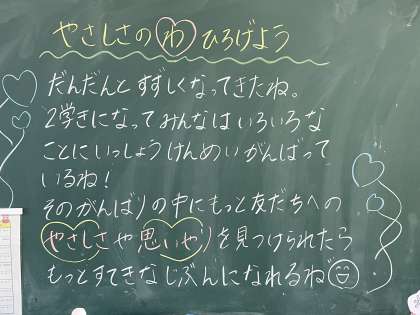 やさしさの わ ひろげよう
だんだんと すずしくなってきたね。
2学きになって みんなは いろいろな
ことに いっしょうけんめい がんばって
いるね!
そのがんばりの中に もっと 友だちへの
やさしさ や 思いやり を見つけられたら
もっと すてきな じぶんに なれるね